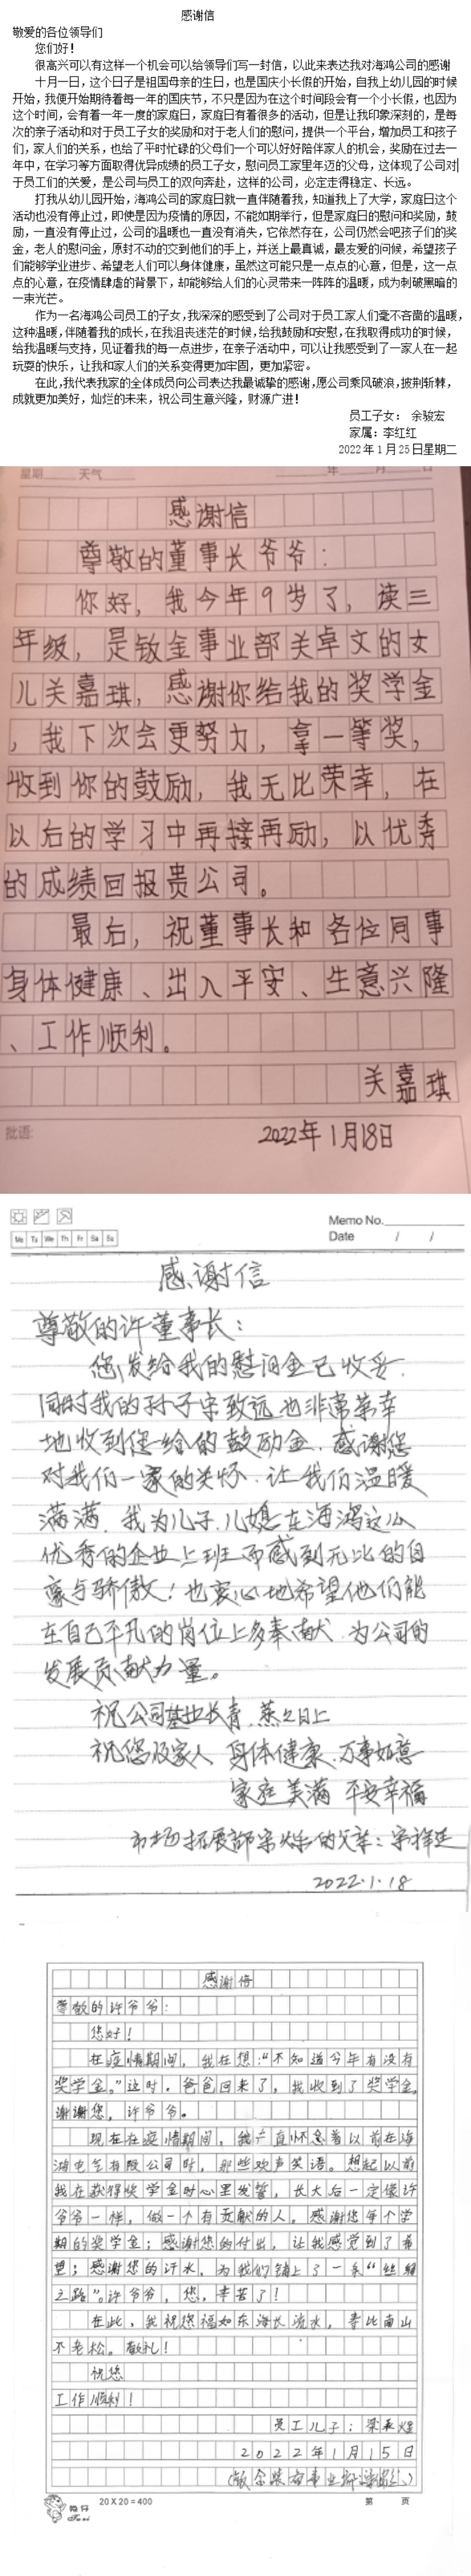 感谢信
敬爱的各位领导们
您们好！
很高兴可以有这样一个机会可以给领导们写一封信，以此来表达我对海鸿公司的感谢
十月一日，这个日子是祖国母亲的生日，也是国庆小长假的开始，自我上幼儿园的时候
开始，我便开始期待着每一年的国庆节，不只是因为在这个时间段会有一个小长假，也因为
这个时间，会有着一年一度的家庭日，家庭日有着很多的活动，但是让我印象深刻的，是每
次的亲子活动和对于员工子女的奖励和对于老人们的慰问，提供一个平台，增加员工和孩子
们，家人们的关系，也给了平时忙碌的父母们一个可以好好陪伴家人的机会，奖励在过去一
年中，在学习等方面取得优异成绩的员工子女，慰问员工家里年迈的父母，这体现了公司对
于员工们的关爱，是公司与员工的双向奔赴，这样的公司，必定走得稳定、长远。
打我从幼儿园开始，海鸿公司的家庭日就一直伴随着我，知道我上了大学，家庭日这个
活动也没有停止过，即使是因为疫情的原因，不能如期举行，但是家庭日的慰问和奖励，鼓
励，一直没有停止过，公司的温暖也一直没有消失，它依然存在，公司仍然会吧孩子们的奖
金，老人的慰问金，原封不动的交到他们的手上，并送上最真诚，最友爱的问候，希望孩子
们能够学业进步、希望老人们可以身体健康，虽然这可能只是一点点的心意，但是，这一点
点的心意，在疫情肆虐的背景下，却能够给人们的心灵带来一阵阵的温暖，成为刺破黑暗的
一束光芒。
作为一名海鸿公司员工的子女，我深深的感受到了公司对于员工家人们毫不吝啬的温暖，
这种温暖，伴随着我的成长，在我沮丧迷茫的时候，给我鼓励和安慰，在我取得成功的时候，
给我温暖与支持，见证着我的每一点进步，在亲子活动中，可以让我感受到了一家人在一起
玩耍的快乐，让我和家人们的关系变得更加牢固，更加紧密。
在此，我代表我家的全体成员向公司表达我最诚挚的感谢，愿公司乘风破浪，披荆斩棘，
成就更加美好，灿烂的未来，祝公司生意兴隆，财源广进！
员工子女： 余骏宏
家属：李红红
2022年1月25日星期二
星期 天气 年 月 日
感谢信
尊敬的董事长爷爷：
你好，我今年9岁了，读三
年级，是钣金事业部关卓文的女
儿关嘉琪，感谢你给我的奖学金
，我下次会更努力，拿一等奖，
收到你的鼓励，我无比荣幸，在
以后的学习中再接再励，以优秀
的成绩回报贵公司。
最后，祝董事长和各位同事
身体健康、出入平安、生意兴隆
、工作顺利。
关嘉琪
批语:
2022年1月18日
Memo No.
Mo Tu We Th Fr Sa Su
Date / /
感谢信
尊敬的许董事长：
您发给我的慰问金已收妥.
同时我的孙子宋致远也非常荣幸
地收到您给的鼓励金.感谢您
对我们一家的关怀.让我们温暖
满满.我为儿子.儿媳在海鸿这么
优秀的企业上班而感到无比的自
豪与骄傲！也衷心地希望他们能
在自己平凡的岗位上多奉献.为公司的
发展贡献力量。
祝公司基业长青.蒸々日上
祝您及家人 身体健康.万事如意
家庭美满 平安幸福
市场拓展部宋烁的父亲：宋祥廷
2022.1.18
感谢信
尊敬的许爷爷：
您好！
在疫情期间，我在想：“不知道今年有没有
奖学金。”这时，爸爸回来了，我收到了奖学金，
谢谢您，许爷爷。
现在在疫情期间，我一直怀念着以前在海
鸿电气有限公司时，那些欢声笑语。想起以前
我在获得奖学金时心里发誓，长大后一定像许
爷爷一样，做一个有贡献的人。感谢您每个学
期的奖学金；感谢您的付出，让我感觉到了希
望；感谢您的汗水，为我们铺上了一条“丝绸
之路”。许爷爷，您，辛苦了！
在此，我祝您福如东海长流水，寿比南山
不老松。敬礼！
祝您
工作顺利！
员工儿子：梁
2022年1月15日
20 X 20 = 400
第 页